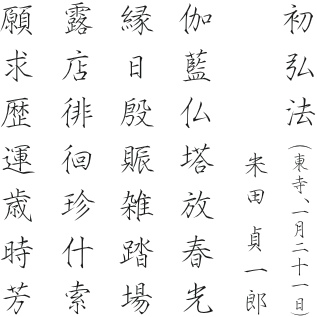 初弘法
(東寺、一月二十一日)
米田貞一郎
伽藍仏塔放春光
縁日殷賑雑踏場
露店徘徊珍什索
願求歴運歳時芳